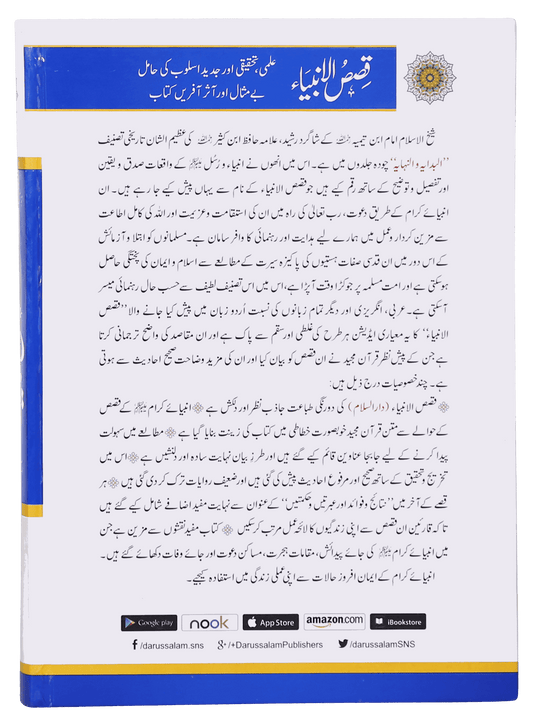 قصص الانبیاء
علمی، تحقیقی اور جدید اسلوب کی حامل
بے مثال اور آثر آفریں کتاب
شیخ الاسلام امام ابن تیمیہ رحمہ اللہ کے شاگرد رشید، علامہ حافظ ابن کثیر رحمہ اللہ کی عظیم الشان تاریخی تصنیف
”البدایہ والنہایہ“ چودہ جلدوں میں ہے۔ اس میں انھوں نے انبیاء و رسل ﷺ کے واقعات صدق و یقین
اور تفصیل و توضیح کے ساتھ رقم کیے ہیں جو قصص الانبیاء کے نام سے یہاں پیش کیے جا رہے ہیں۔ ان
انبیائے کرام کے طریق دعوت، رب تعالیٰ کی راہ میں ان کی استقامت و عزیمت اور اللہ کی کامل اطاعت
سے مزین کردار و عمل میں ہمارے لیے ہدایت اور رہنمائی کا وافر سامان ہے۔ مسلمانوں کو ابتلا و آزمائش
کے اس دور میں ان قدسی صفات ہستیوں کی پاکیزہ سیرت کے مطالعے سے اسلام و ایمان کی پختگی حاصل
ہو سکتی ہے اور امت مسلمہ پر جو کڑا وقت آ پڑا ہے، اس میں اس تصنیف لطیف سے حسب حال رہنمائی میسر
آ سکتی ہے۔ عربی، انگریزی اور دیگر تمام زبانوں کی نسبت اُردو زبان میں پیش کیا جانے والا ”قصص
الانبیاء“ کا یہ معیاری ایڈیشن ہر طرح کی غلطی اور سقم سے پاک ہے اور ان مقاصد کی واضح ترجمانی کرتا
ہے جن کے پیش نظر قرآن مجید نے ان قصص کو بیان کیا اور ان کی مزید وضاحت صحیح احادیث سے ہوتی
ہے۔ چند خصوصیات درج ذیل ہیں:
قصص الانبیاء (دارالسلام) کی دو رنگی طباعت جاذب نظر اور دلکش ہے انبیائے کرام ﷺ کے قصص
کے حوالے سے متن قرآن مجید خوبصورت خطاطی میں کتاب کی زینت بنایا گیا ہے مطالعے میں سہولت
پیدا کرنے کے لیے جابجا عناوین قائم کیے گئے ہیں اور طرز بیان نہایت سادہ اور دلنشیں ہے اس میں
تخریج و تحقیق کے ساتھ صحیح اور مرفوع احادیث پیش کی گئی ہیں اور ضعیف روایات ترک کر دی گئی ہیں ہر
قصے کے آخر میں ”نتائج و فوائد اور عبرتیں و حکمتیں“ کے عنوان سے نہایت مفید اضافے شامل کیے گئے ہیں
تاکہ قارئین ان قصص سے اپنی زندگیوں کا لائحہ عمل مرتب کر سکیں کتاب مفید نقشوں سے مزین ہے جن
میں انبیائے کرام ﷺ کی جائے پیدائش، مقامات ہجرت، مساکن دعوت اور جائے وفات دکھائے گئے ہیں۔
انبیائے کرام کے ایمان افروز حالات سے اپنی عملی زندگی میں استفادہ کیجیے۔
Google play nook App Store amazon.com iBookstore
f /darussalam.sns g+ /+DarussalamPublishers /darussalamSNS